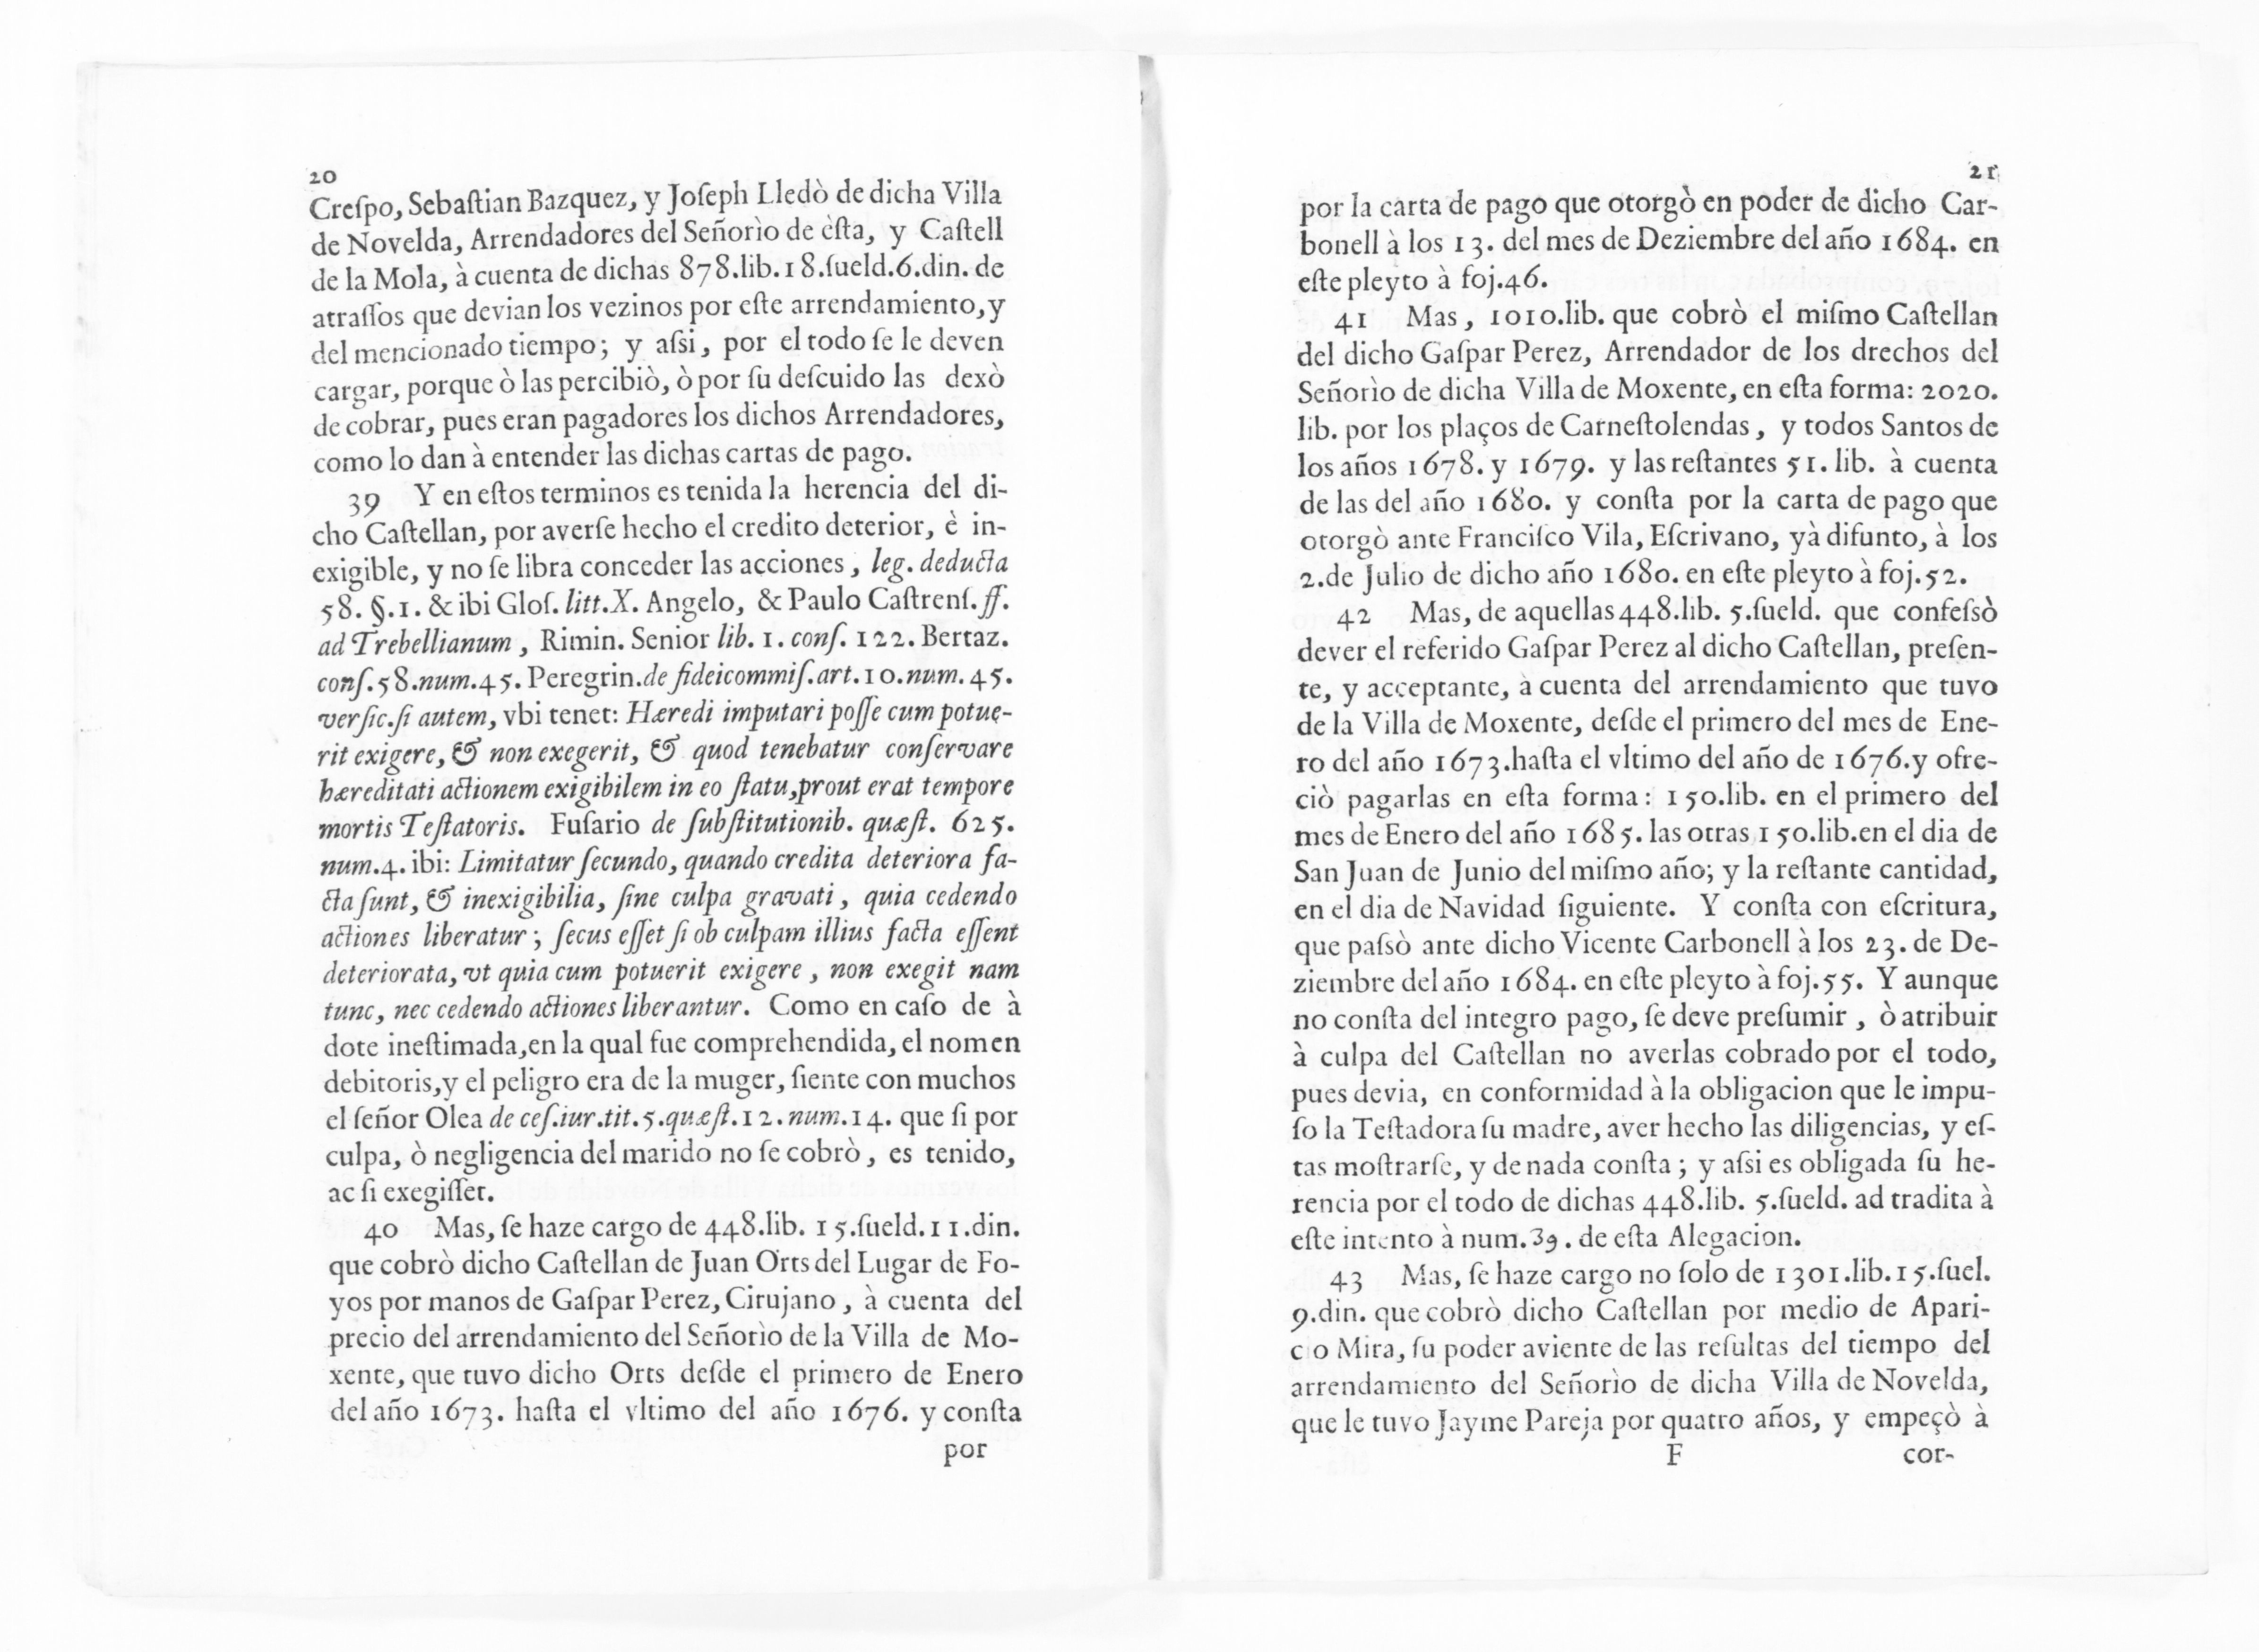 20
Creſpo, Sebaſtian Bazquez, y Joſeph Lledò de dicha Villa
de Novelda, Arrendadores del Señorìo de èſta, y Caſtell
de la Mola, à cuenta de dichas 878.lib.18.ſueld.6.din. de
atraſſos que devian los vezinos por eſte arrendamiento, y
del mencionado tiempo; y aſsi, por el todo ſe le deven
cargar, porque ò las percibiò, ò por ſu deſcuido las dexò
de cobrar, pues eran pagadores los dichos Arrendadores,
como lo dan à entender las dichas cartas de pago.
39 Y en eſtos terminos es tenida la herencia del di-
cho Caſtellan, por averſe hecho el credito deterior, è in-
exigible, y no ſe libra conceder las acciones, leg. deducta
58. §.1. & ibi Gloſ. litt.X. Angelo, & Paulo Caſtrenſ. ff.
ad Trebellianum, Rimin. Senior lib. 1. conſ. 122. Bertaz.
conſ.58.num.45. Peregrin.de fideicommiſ.art.10.num.45.
verſic.ſi autem, vbi tenet: Hæredi imputari poſſe cum potue-
rit exigere, & non exegerit, & quod tenebatur conſervare
hæreditati actionem exigibilem in eo ſtatu,prout erat tempore
mortis Teſtatoris. Fuſario de ſubſtitutionib. quæſt. 625.
num.4. ibi: Limitatur ſecundo, quando credita deteriora fa-
cta ſunt, & inexigibilia, ſine culpa gravati, quia cedendo
actiones liberatur; ſecus eſſet ſi ob culpam illius facta eſſent
deteriorata, vt quia cum potuerit exigere, non exegit nam
tunc, nec cedendo actiones liberantur. Como en caſo de à
dote ineſtimada,en la qual fue comprehendida, el nomen
debitoris,y el peligro era de la muger, ſiente con muchos
el ſeñor Olea de ceſ.iur.tit.5.quæſt.12.num.14. que ſi por
culpa, ò negligencia del marido no ſe cobrò, es tenido,
ac ſi exegiſſet.
40 Mas, ſe haze cargo de 448.lib. 15.ſueld.11.din.
que cobrò dicho Caſtellan de Juan Orts del Lugar de Fo-
yos por manos de Gaſpar Perez, Cirujano, à cuenta del
precio del arrendamiento del Señorìo de la Villa de Mo-
xente, que tuvo dicho Orts deſde el primero de Enero
del año 1673. haſta el vltimo del año 1676. y conſta
por
21
por la carta de pago que otorgò en poder de dicho Car-
bonell à los 13. del mes de Deziembre del año 1684. en
eſte pleyto à foj.46.
41 Mas, 1010.lib. que cobrò el miſmo Caſtellan
del dicho Gaſpar Perez, Arrendador de los drechos del
Señorìo de dicha Villa de Moxente, en eſta forma: 2020.
lib. por los plaços de Carneſtolendas, y todos Santos de
los años 1678. y 1679. y las reſtantes 51. lib. à cuenta
de las del año 1680. y conſta por la carta de pago que
otorgò ante Franciſco Vila, Eſcrivano, yà difunto, à los
2.de Julio de dicho año 1680. en eſte pleyto à foj.52.
42 Mas, de aquellas 448.lib. 5.ſueld. que confeſsò
dever el referido Gaſpar Perez al dicho Caſtellan, preſen-
te, y acceptante, à cuenta del arrendamiento que tuvo
de la Villa de Moxente, deſde el primero del mes de Ene-
ro del año 1673.haſta el vltimo del año de 1676.y ofre-
ciò pagarlas en eſta forma: 150.lib. en el primero del
mes de Enero del año 1685. las otras 150.lib.en el dia de
San Juan de Junio del miſmo año; y la reſtante cantidad,
en el dia de Navidad ſiguiente. Y conſta con eſcritura,
que paſsò ante dicho Vicente Carbonell à los 23. de De-
ziembre del año 1684. en eſte pleyto à foj.55. Y aunque
no conſta del integro pago, ſe deve preſumir, ò atribuir
à culpa del Caſtellan no averlas cobrado por el todo,
pues devia, en conformidad à la obligacion que le impu-
ſo la Teſtadora ſu madre, aver hecho las diligencias, y eſ-
tas moſtrarſe, y de nada conſta; y aſsi es obligada ſu he-
rencia por el todo de dichas 448.lib. 5.ſueld. ad tradita à
eſte intento à num.39. de eſta Alegacion.
43 Mas, ſe haze cargo no ſolo de 1301.lib.15.ſuel.
9.din. que cobrò dicho Caſtellan por medio de Apari-
cio Mira, ſu poder aviente de las reſultas del tiempo del
arrendamiento del Señorìo de dicha Villa de Novelda,
que le tuvo Jayme Pareja por quatro años, y empeçò à
F cor-